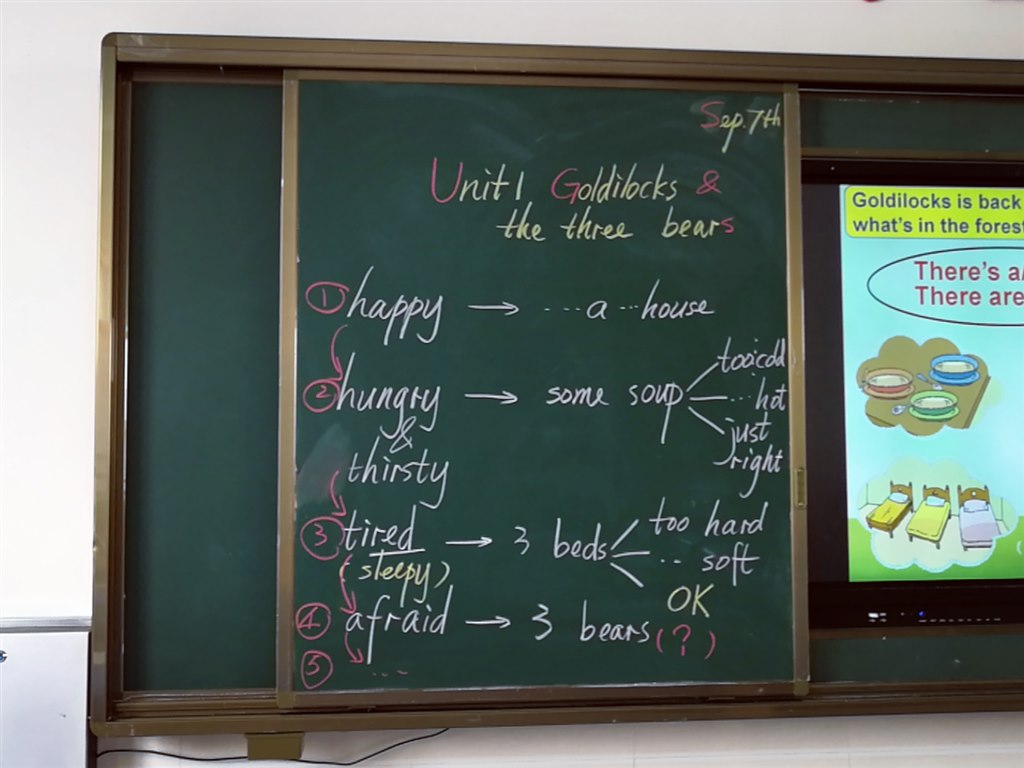 Sep. 7th
Unit 1 Goldilocks &
the three bears
① happy → ... a ... house
② hungry → some soup
too cold
... hot
just
right
&
thirsty
③ tired → 3 beds
too hard
... soft
OK
(sleepy)
④ afraid → 3 bears (?)
⑤ ...
Goldilocks is back
what's in the forest
There's a
There are